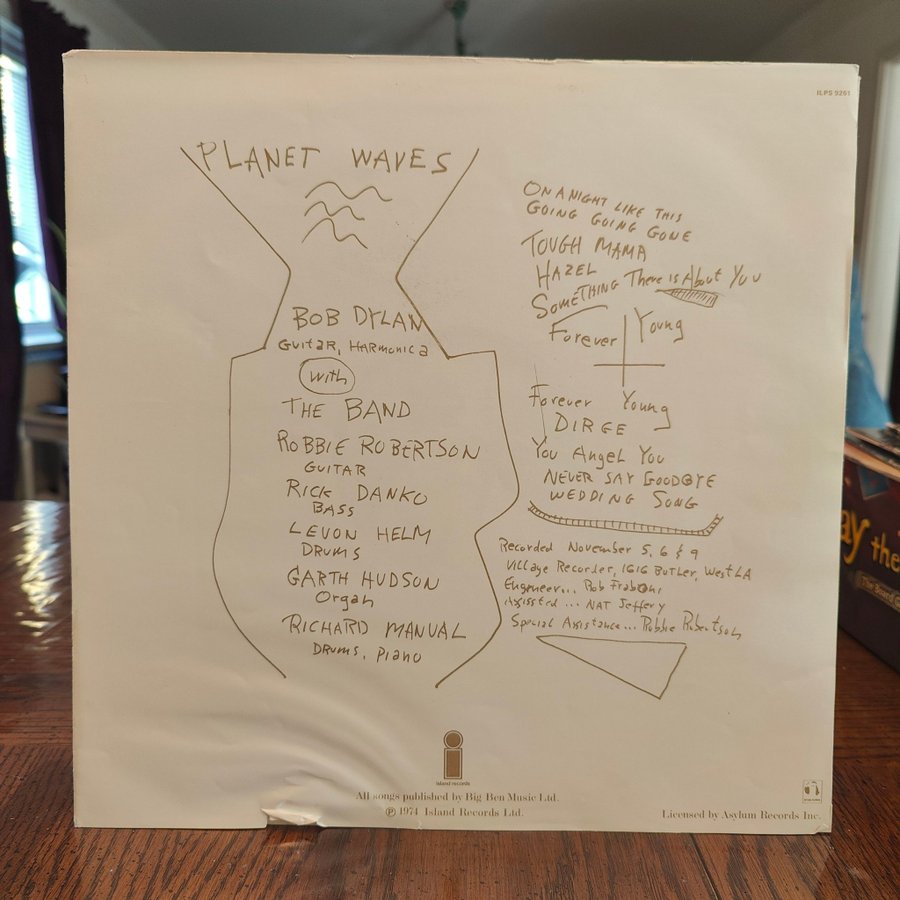 ILPS 9261
PLANET WAVES
BOB DYLAN
GUITAR, HARMONICA
With
THE BAND
ROBBIE ROBERTSON
GUITAR
RICK DANKO
BASS
LEVON HELM
DRUMS
GARTH HUDSON
Organ
RICHARD MANUAL
DRUMS, PIANO
ON A NIGHT LIKE THIS
GOING GOING GONE
TOUGH MAMA
HAZEL
SOMETHING There is About You
Forever Young
Forever Young
DIRGE
You Angel You
NEVER SAY GOODBYE
WEDDING SONG
Recorded November 5, 6 & 9
Village Recorder, 1616 BUTLER, West LA
Engineer... Rob Fraboni
Assissted... NAT Jeffery
Special Assistance... Robbie Robertson
island records
All songs published by Big Ben Music Ltd.
℗ 1974 Island Records Ltd.
Licensed by Asylum Records Inc.
ay the
The Board G